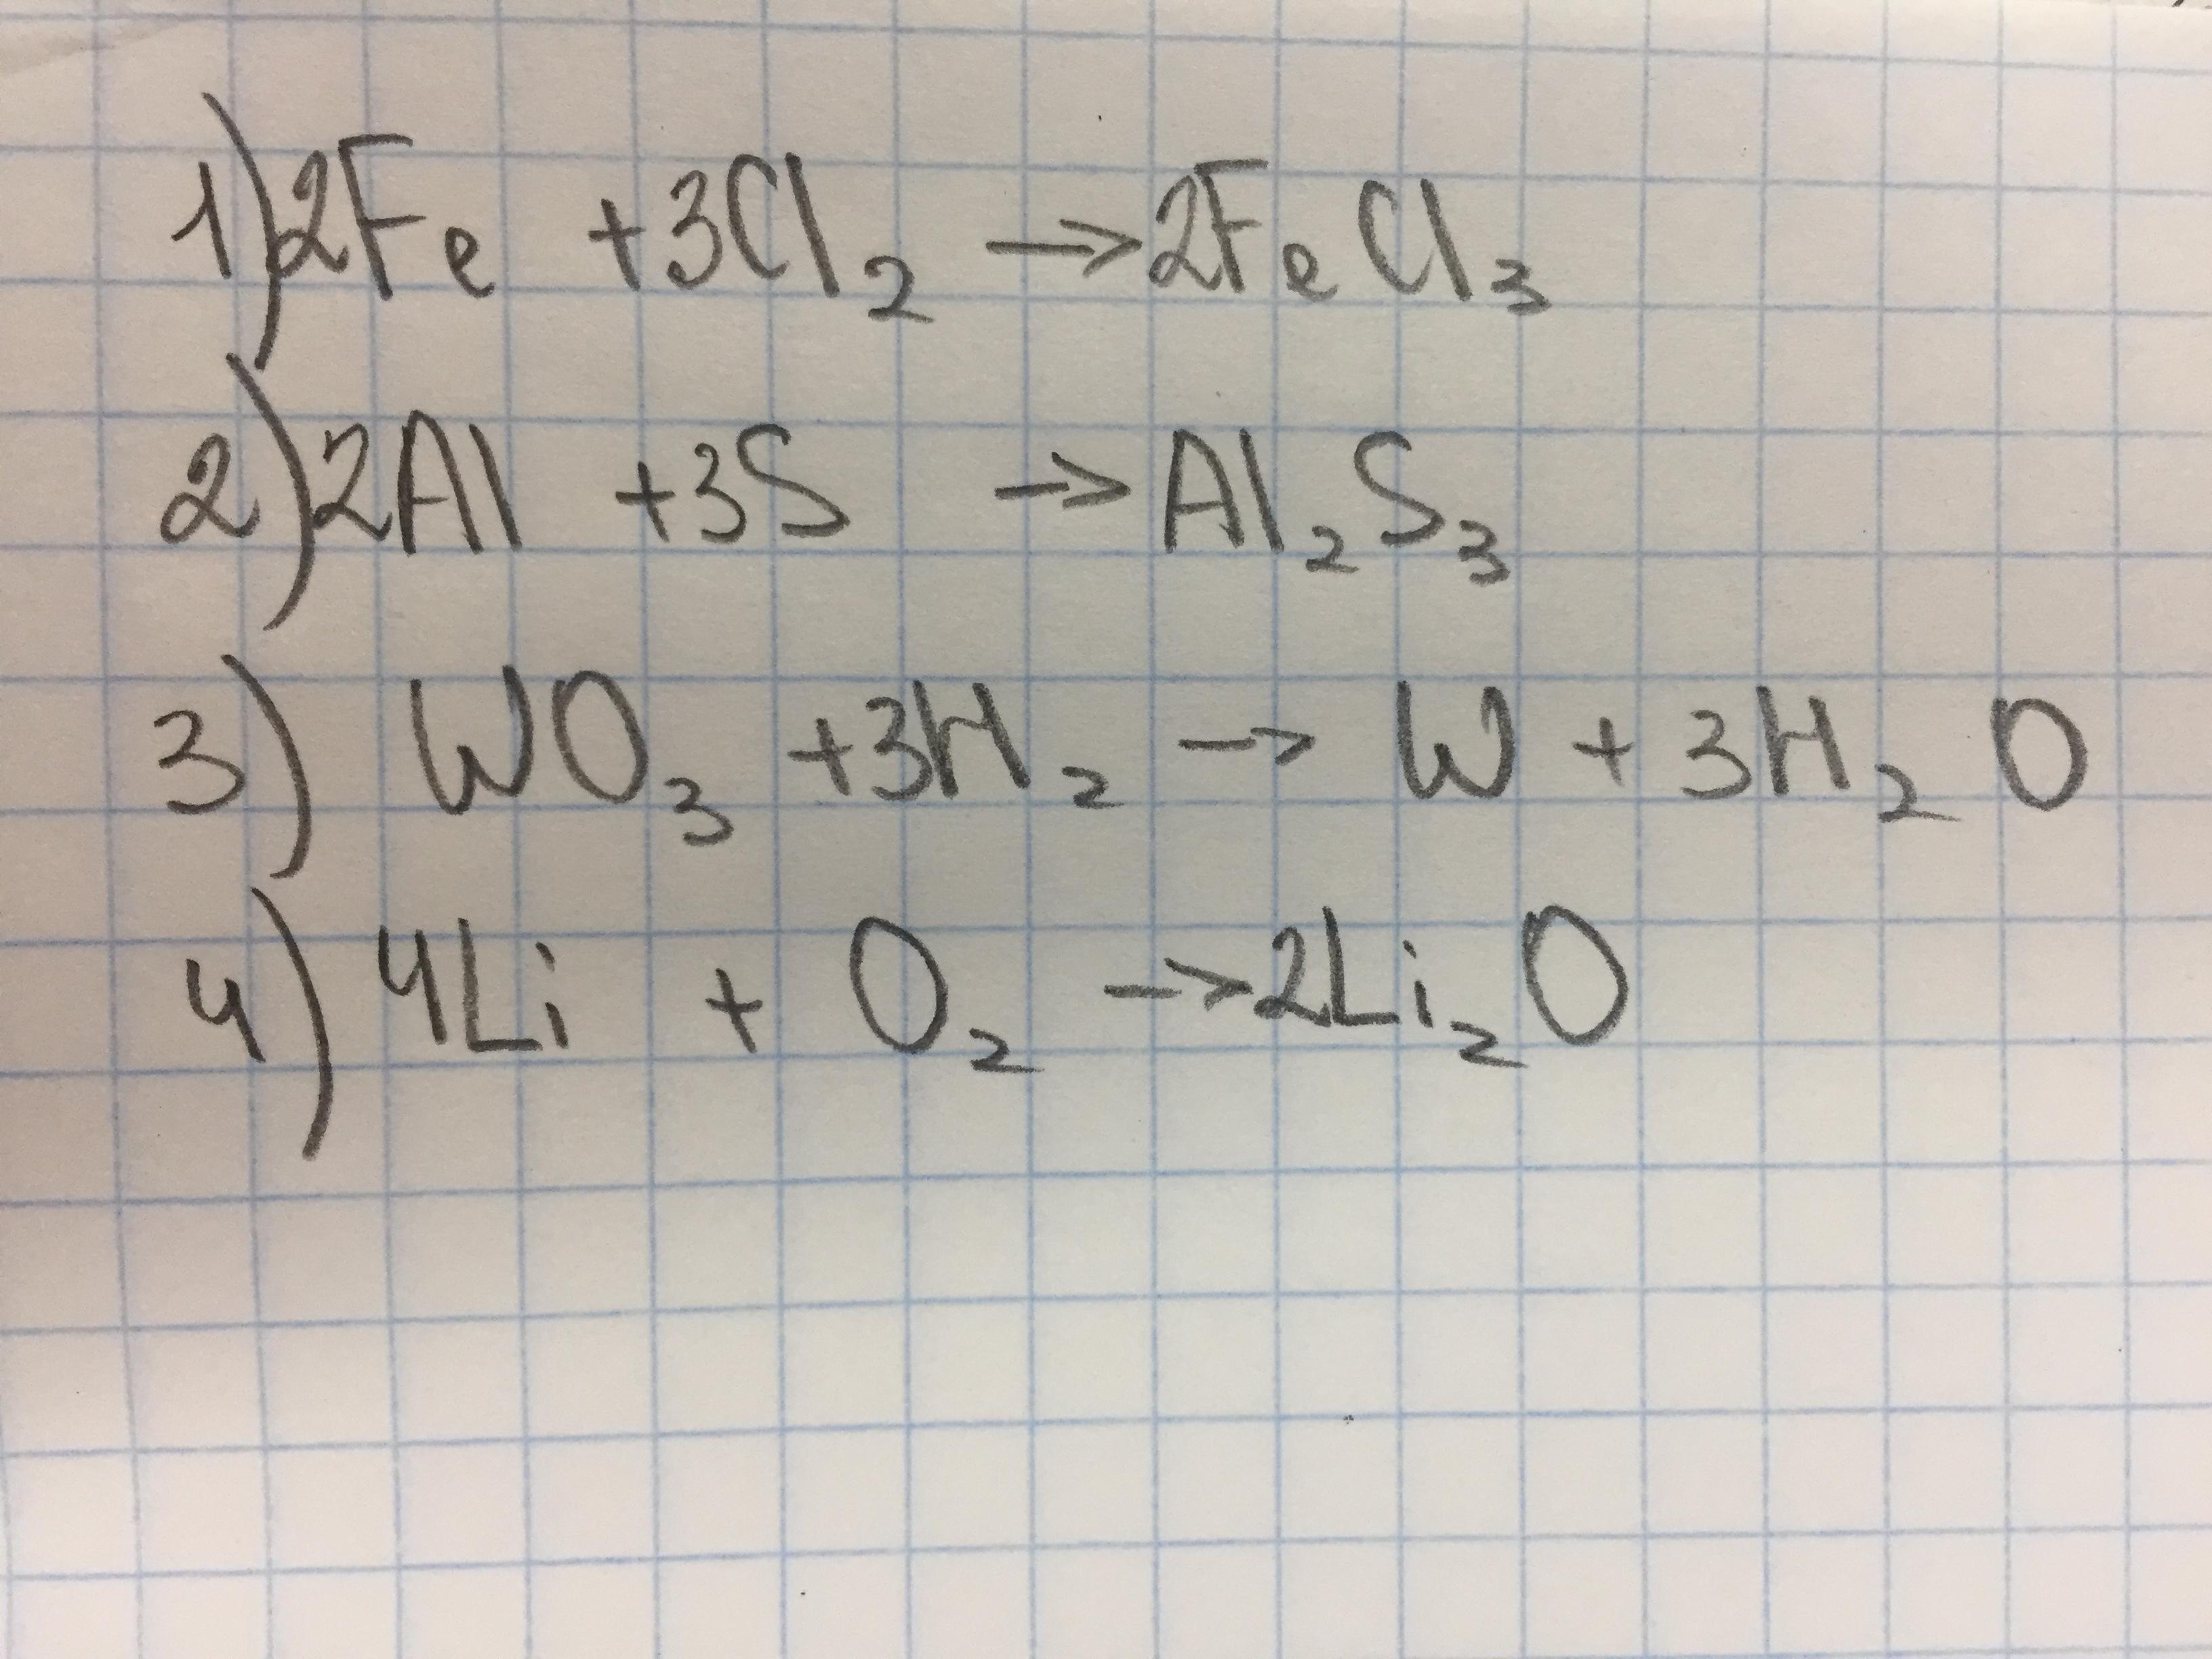 1) 2Fe + 3Cl₂ → 2FeCl₃
2) 2Al + 3S → Al₂S₃
3) WO₃ + 3H₂ → W + 3H₂O
4) 4Li + O₂ → 2Li₂O